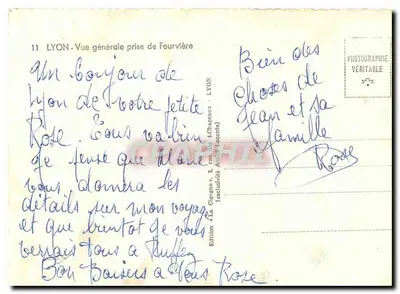 11 LYON - Vue générale prise de Fourvière
Un bonjour de
Lyon de votre petite
Rose. Tous va bien
je pense que
vous, donnera les
détails sur mon voyage
et que bientot je vous
verrais tous a Ruffey
Bon Baisers a Vous Rose.
Bien des
choses de
Jean et sa
famille
Rose
PHOTOGRAPHIE
VÉRITABLE
Edition « La Cigogne », LYON